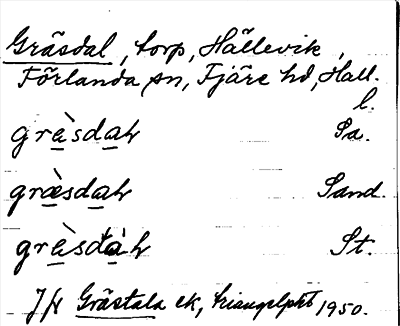 Gräsdal, torp, Hällevik,
Förlanda sn, Fjäre hd, Hall.
l.
græ̀sdaɫ Sa.
græ̀sdaɫ Sand.
græ̀sdaɫ St.
Jfr Grästala ek, triangelpkt 1950.